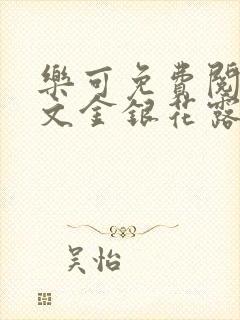 樂可免費閱
文金銀花露
吴怡